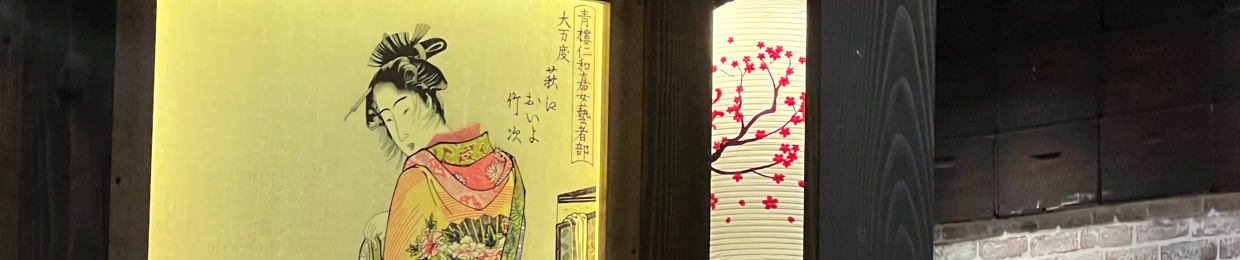 青樓仁和嘉女藝者部
大万度
萩江
おいよ
竹次